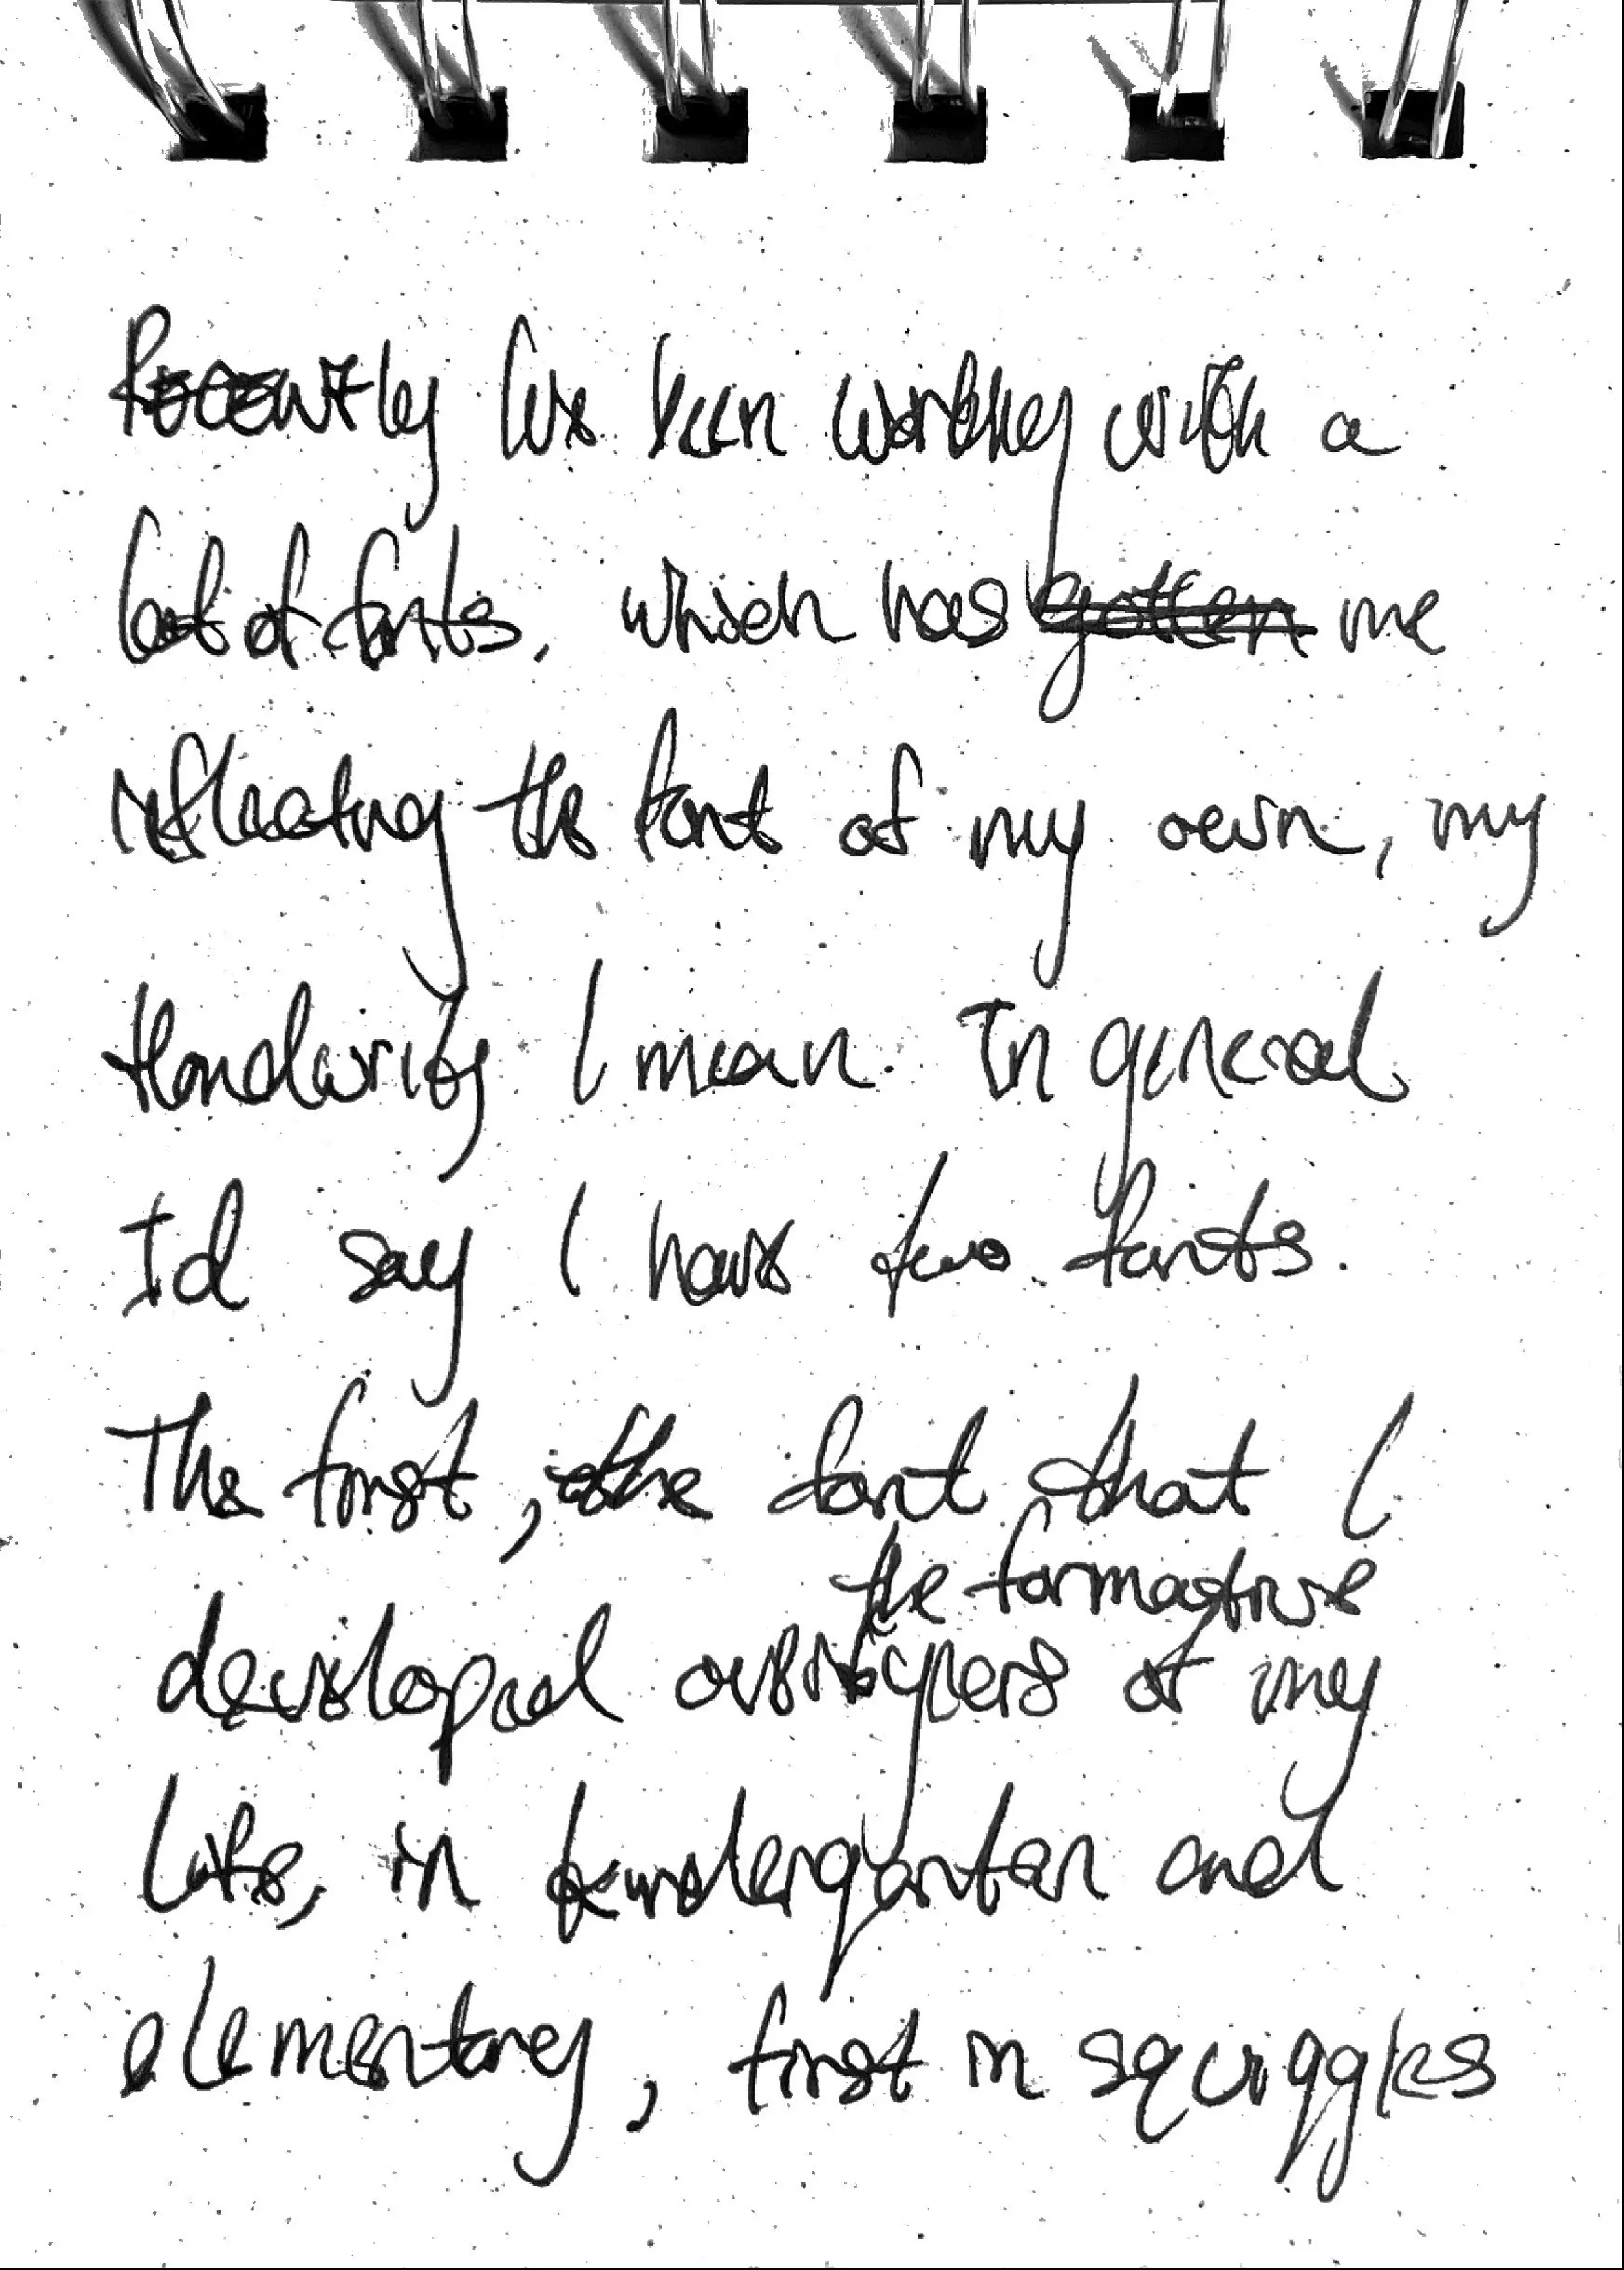 Recently I've been working with a
lot of fonts, which has gotten me
reflecting the font of my own, my
Handwritig I mean. In general
I'd say I have two fonts.
The first, the font that I
the formative
developed over years of my
life, in kindergarten and
elementary, first in squiggles